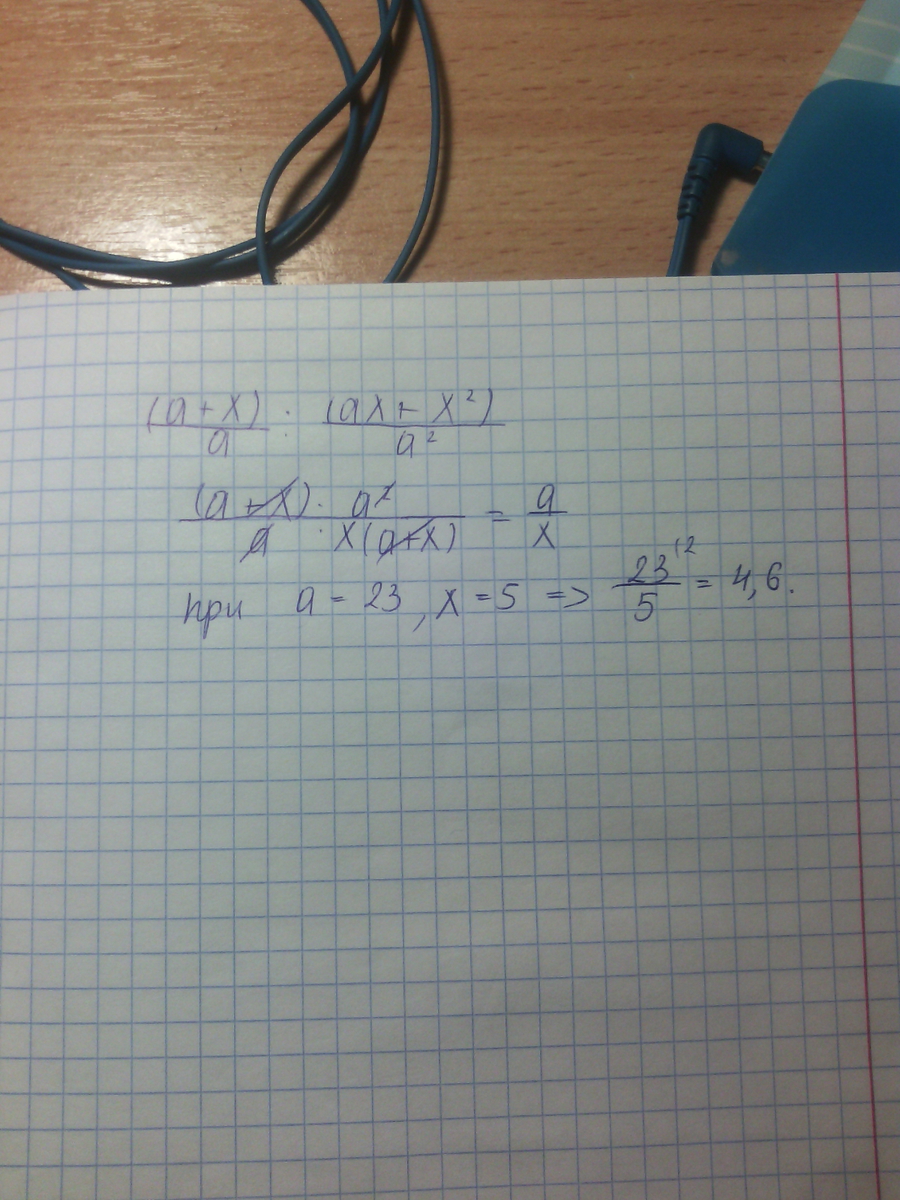 (a + x)/a : (ax + x²)/a²
(a + x)/a · a²/x(a+x) = a/x
при a = 23, x = 5 => 23⁽²/5 = 4,6.